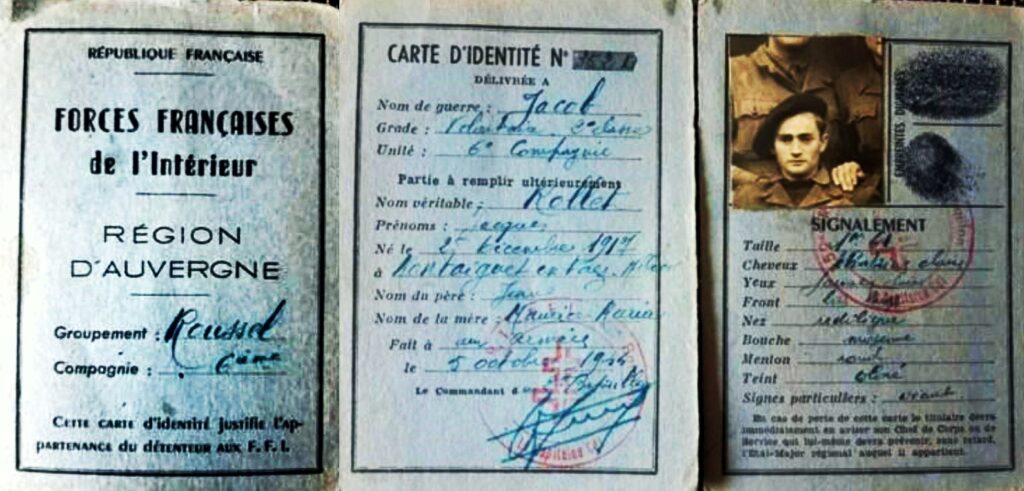 RÉPUBLIQUE FRANÇAISE
FORCES FRANÇAISES
de l'Intérieur
RÉGION
D'AUVERGNE
Groupement : Roussel
Compagnie : 6ème
Cette carte d'identité justifie l'ap-
partenance du détenteur aux F. F. I.
CARTE D'IDENTITÉ N°
DÉLIVRÉE A
Nom de guerre : Jacob
Grade : Volontaire 2e classe
Unité : 6e Compagnie
Partie à remplir ultérieurement
Nom véritable : Kollet
Prénoms : Jacques
Né le 2 Décembre 1917
à Montaiguet en
Nom du père : Jean
Nom de la mère : Maurice Maria
Fait à aux armées
le 5 octobre 1944
Le Commandant
EMPREINTES
SIGNALEMENT
Taille 1m 61
Cheveux
Yeux
Front
Nez rectiligne
Bouche moyenne
Menton rond
Teint
Signes particuliers : néant
En cas de perte de cette carte le titulaire devra
immédiatement en aviser son Chef de Corps ou de
Service qui lui-même devra prévenir, sans retard,
l'Etat-Major régional auquel il appartient.